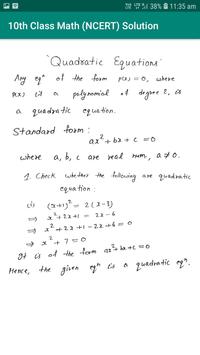 11:35 am
38%
10th Class Math (NCERT) Solution
"Quadratic Equations"
Any eqⁿ of the form p(x) = 0, where
p(x) is a polynomial of degree 2, is
a quadratic equation.
Standard form :
ax² + bx + c = 0
where a, b, c are real num, a ≠ 0.
1. Check whether the following are quadratic
equation :
(i) (x+1)² = 2(x-3)
⇒ x² + 2x + 1 = 2x - 6
⇒ x² + 2x + 1 - 2x + 6 = 0
⇒ x² + 7 = 0
It is of the form ax² + bx + c = 0
Hence, the given eqⁿ is a quadratic eqⁿ.